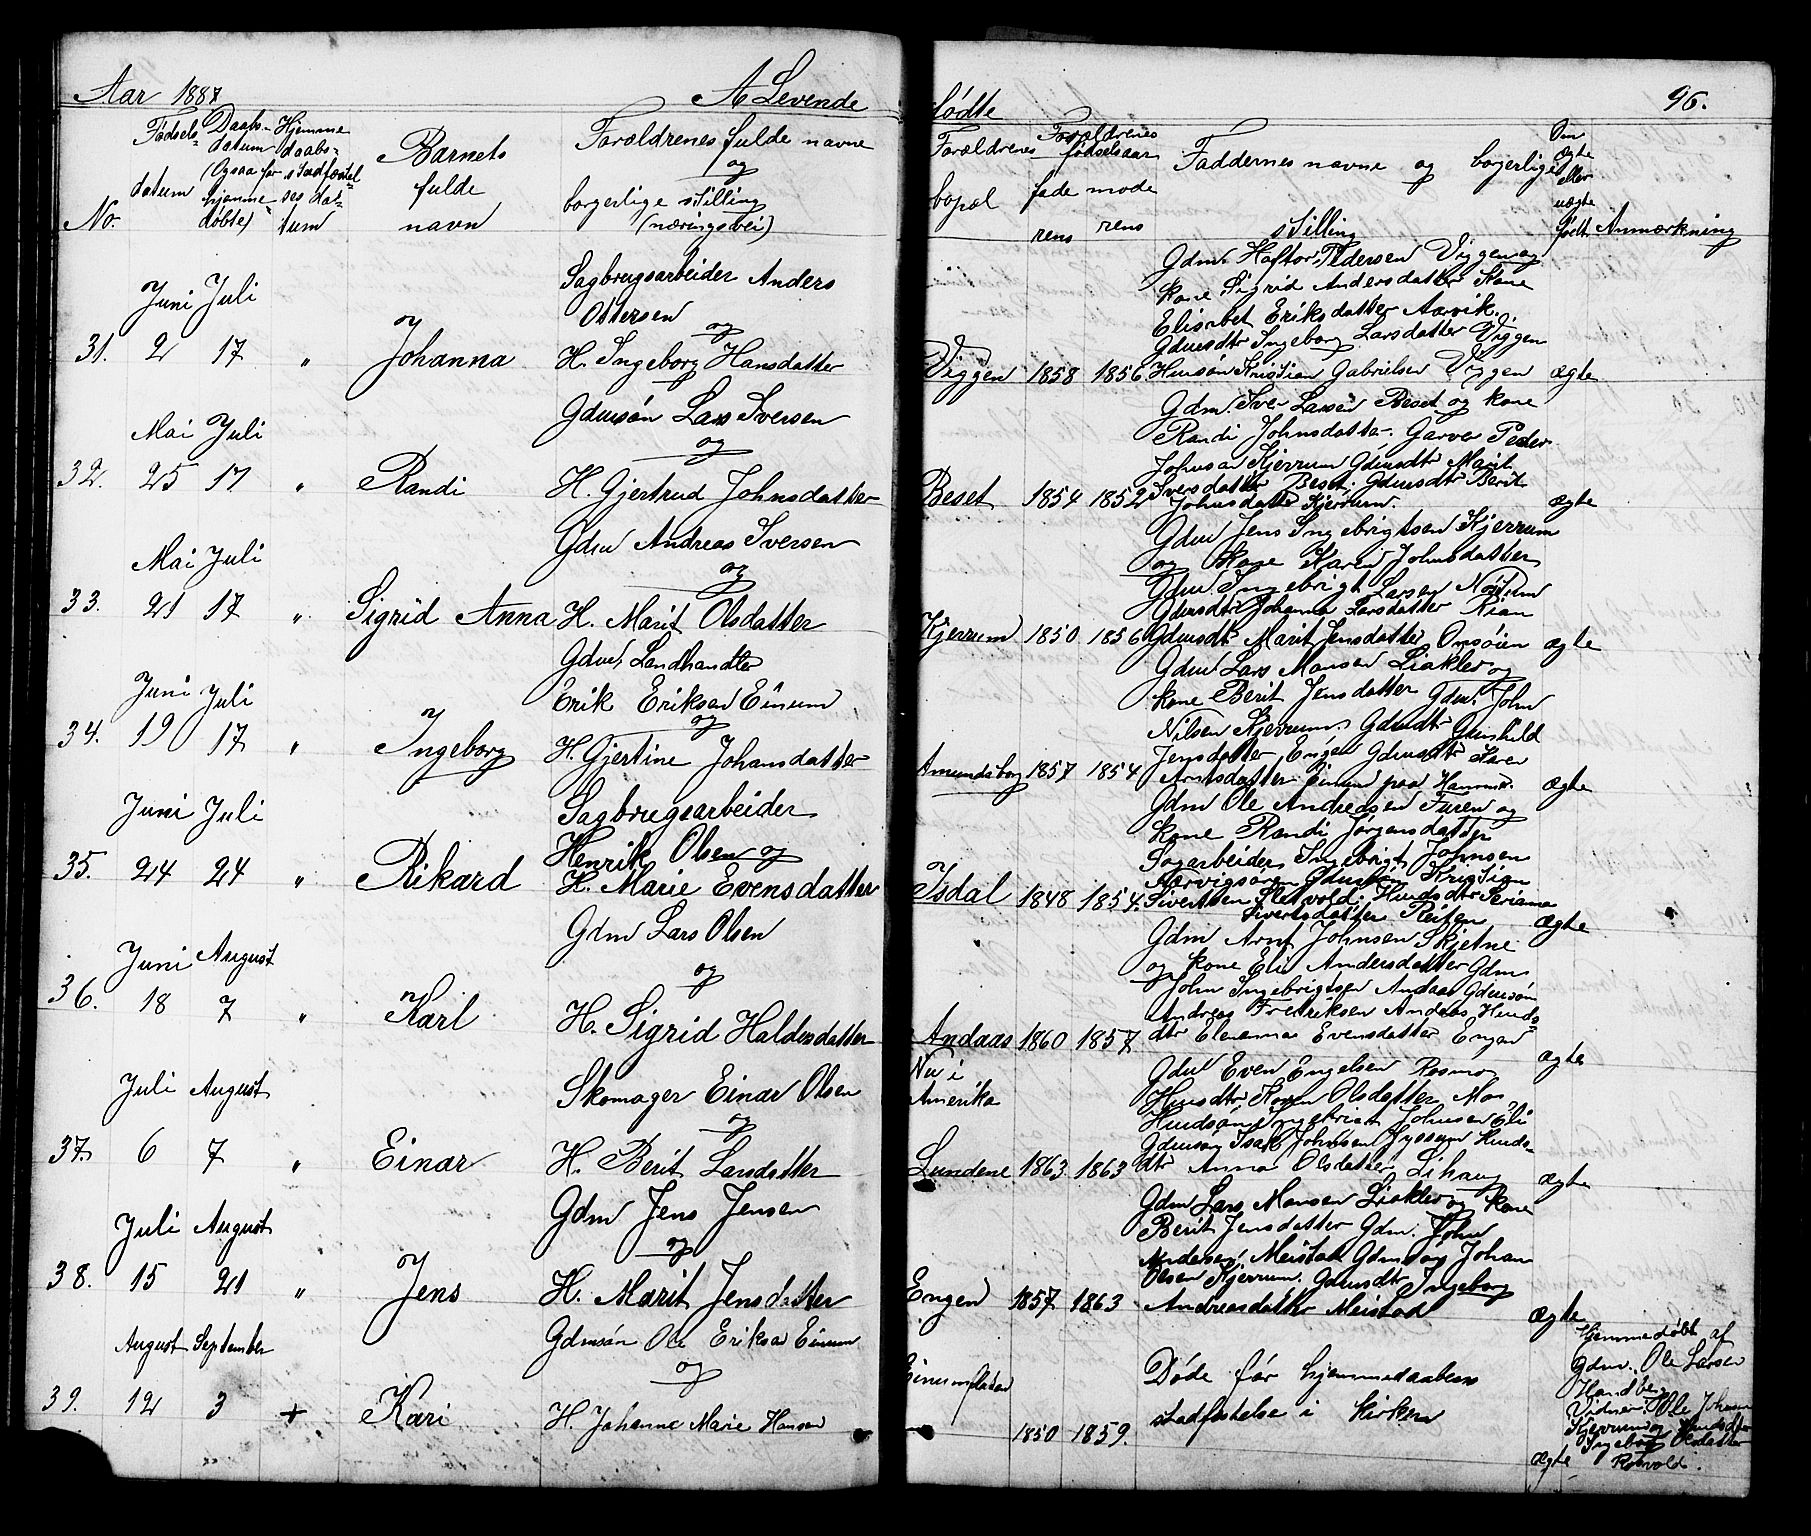 Aar 1887
A Levende
fødte
96.
Fødsels- datum
Daabs- datum (Ogsaa for hjemme døbte)
Hjemme daabs- Stadfæstel- ses dat- tum
No.
Barnets
fulde
navn
Forældrenes fulde navne
og
borgerlige stilling
(næringsvei)
Forældrenes
bopæl
Forældrenes
fødselsaar
fade mode
rens rens
Faddernes navne og borgerlige
stilling
Om
ægte
eller
uægte
født
Anmærkning
Juni Juli
31. 2 17 "
Johanna
Sagbrugsarbeider Anders
Ottersen
og
H. Ingeborg Hansdatter
Viggen 1858 1856
Gdm. Haftor Pedersen Viggen og
kone Sigrid Andersdatter Kone
Elisabet Eriksdatter Aarvik.
Gdmsdtr Ingeborg Larsdatter Viggen
Hussøn Kristian Gabrielsen Viggen
ægte
Mai Juli
32. 25 17 "
Randi
Gdmsøn Lars Iversen
og
H. Gjertrud Johnsdatter
Beset 1854 1852
Gdm. Iver Larsen Beset og kone
Randi Johnsdatter. Garver Peder
Johnsen Kjerrum Gdmsdtr Marit
Iversdatter Beset. Gdmsdtr Berit
Johnsdatter Kjerrum.
ægte
Mai Juli
33. 21 17 "
Sigrid Anna
Gdm Andreas Iversen
og
H. Marit Olsdatter
Kjerrum 1850 1856
Gdm Jens Ingebrigtsen Kjerrum
og Kone Karen Johnsdatter
Gdm. Ingebrigt Larsen
Gdmsdtr Johanna Larsdatter Rian
Gdmsdtr Marit Jensdatter Onsøien
ægte
Juni Juli
34. 19 17 "
Ingeborg
Gdm. Landhandler
Erik Eriksen Einum
og
H. Gjertine Johansdatter
Amundsbog 1857 1854
Gdm Lars Monsen Liaklev og
kone Berit Jensdatter Gdm. John
Nilsen Kjerrum. Gdmdtr Gunhild
Jensdatter Engen Gdmsdtr Karen
Arntsdatter Einum paa Hammer.
ægte
Juni Juli
35. 24 24 "
Rikard
Sagbrugsarbeider
Henrik Olsen og
H. Marie Evensdatter
Isdal 1848 1854.
Gdm Ole Andreasen Furen og
kone Randi Jørgensdatter
Sagarbeider Ingebrigt Johnsen
Aarvigsøren Gdmsøn Kristian
Sivertsen Sletvold. Husdtr Seriana
Sivertsdatter Reiten
ægte
Juni August
36. 18 7 "
Karl
Gdm Lars Olsen
og
H. Sigrid Haldosdatter
Andaas 1860 1857
Nu i
Amerika
Gdm Arnt Johnsen Skjetne
og kone Eli Andersdatter Gdm
John Ingebrigtsen Andaas Gdmsøn
Andreas Fredriksen Andaas Husds-
dtr Elenanna Evensdatter Engan
ægte
Juli August
37. 6 7 "
Einar
Skomager Einar Olsen
og
H. Berit Larsdatter
Lundene 1863 1863
Gdm Even Engelsen Rosmo
Husdtr Karen Olsdatter Mo
Husdsøn Ingebrigt Johnsen Eli
Gdmsøn Isak Johnsen Husds-
dtr Anna Olsdatter Lihaug
ægte
Juli August
38. 15 21 "
Jens
Gdm Jens Jensen
og
H. Marit Jensdatter
Engen 1857 1863
Gdm Lars Monsen Liaklev og kone
Berit Jensdatter Gdm. John
Andersen Meistad Gdmsøn Johan
Olsen Kjerrum. Gdmsdtr Ingeborg
Andreasdatter Meistad
ægte
August September
39. 12 3 +
Kari
Gdmsøn Ole Eriksen Einum
og
H. Johanne Marie Hansen
1850 1859.
Døde før hjemmedaabens
stadfæstelse i kirken
ægte
Hjemmedøbt af
Gdm. Ole Larsen
Vidner Ole Johnsen
Kjerrum og Husdtr
Ingeborg Olsdatter